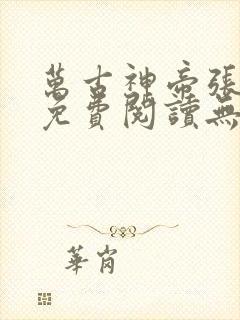 萬古神帝張
免費閱讀無
華崗